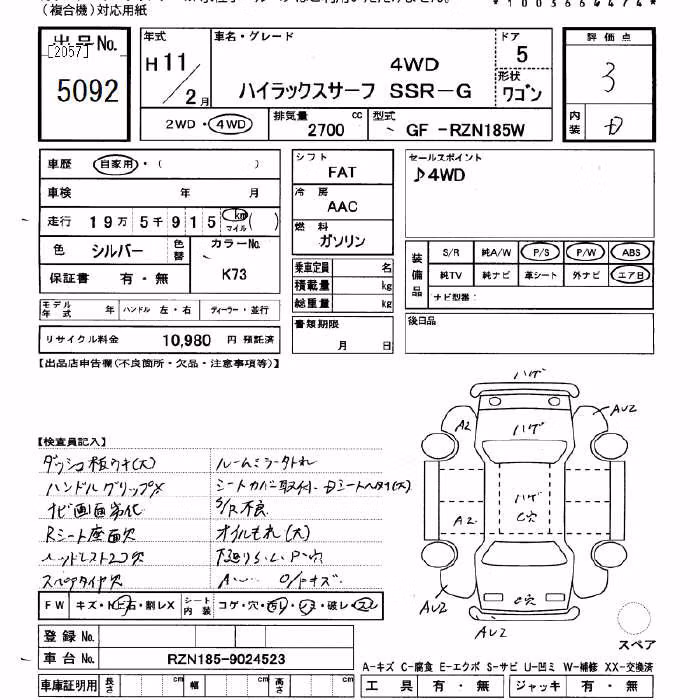 (複合機)対応用紙
*1003664474*
出品No.
[2057]
5092
年式
H 11/2月
車名・グレード
4WD
ハイラックスサーフ SSR-G
ドア
5
形状
ワゴン
2WD・4WD
排気量 2700 cc
型式 GF -RZN185W
評価点
3
内装
D
車歴 自家用・( )
車検 年 月
走行 19万5千915 km マイル ( )
色 シルバー 色替
カラーNo. K73
保証書 有・無
モデル年式 年 ハンドル 左・右 ディーラー・並行
リサイクル料金 10,980 円 預託済
シフト
FAT
冷房
AAC
燃料
ガソリン
乗車定員 名
積載量 kg
総重量 kg
書類期限
月 日
セールスポイント
♪4WD
装備品
S/R 純A/W P/S P/W ABS
純TV 純ナビ 革シート 外ナビ エアB
ナビ型番:
後日品
【出品店申告欄(不良箇所・欠品・注意事項等)】
【検査員記入】
ダッシュ板ワキ(大)
ルームミラー外れ
ハンドルグリップX
シートカバー取付
ナビ画面劣化
S/R不良
Rシート座面穴
オイルもれ(大)
ヘッドレスト2コ穴
下廻りS
スペアタイヤ穴
キズ
FW キズ・飛石・割レX
シート内装 コゲ・穴・汚レ・シミ・破レ・スレ
登録No.
車台No. RZN185-9024523
車庫証明用 長さ cm 幅 cm 高さ cm
ハゲ
AU2
A2
ハゲ
ハゲ
C穴
A2
AU2
C穴
AU2
AU2
スペア
A-キズ C-腐食 E-エクボ S-サビ U-凹ミ W-補修 XX-交換済
工具 有・無 ジャッキ 有・無